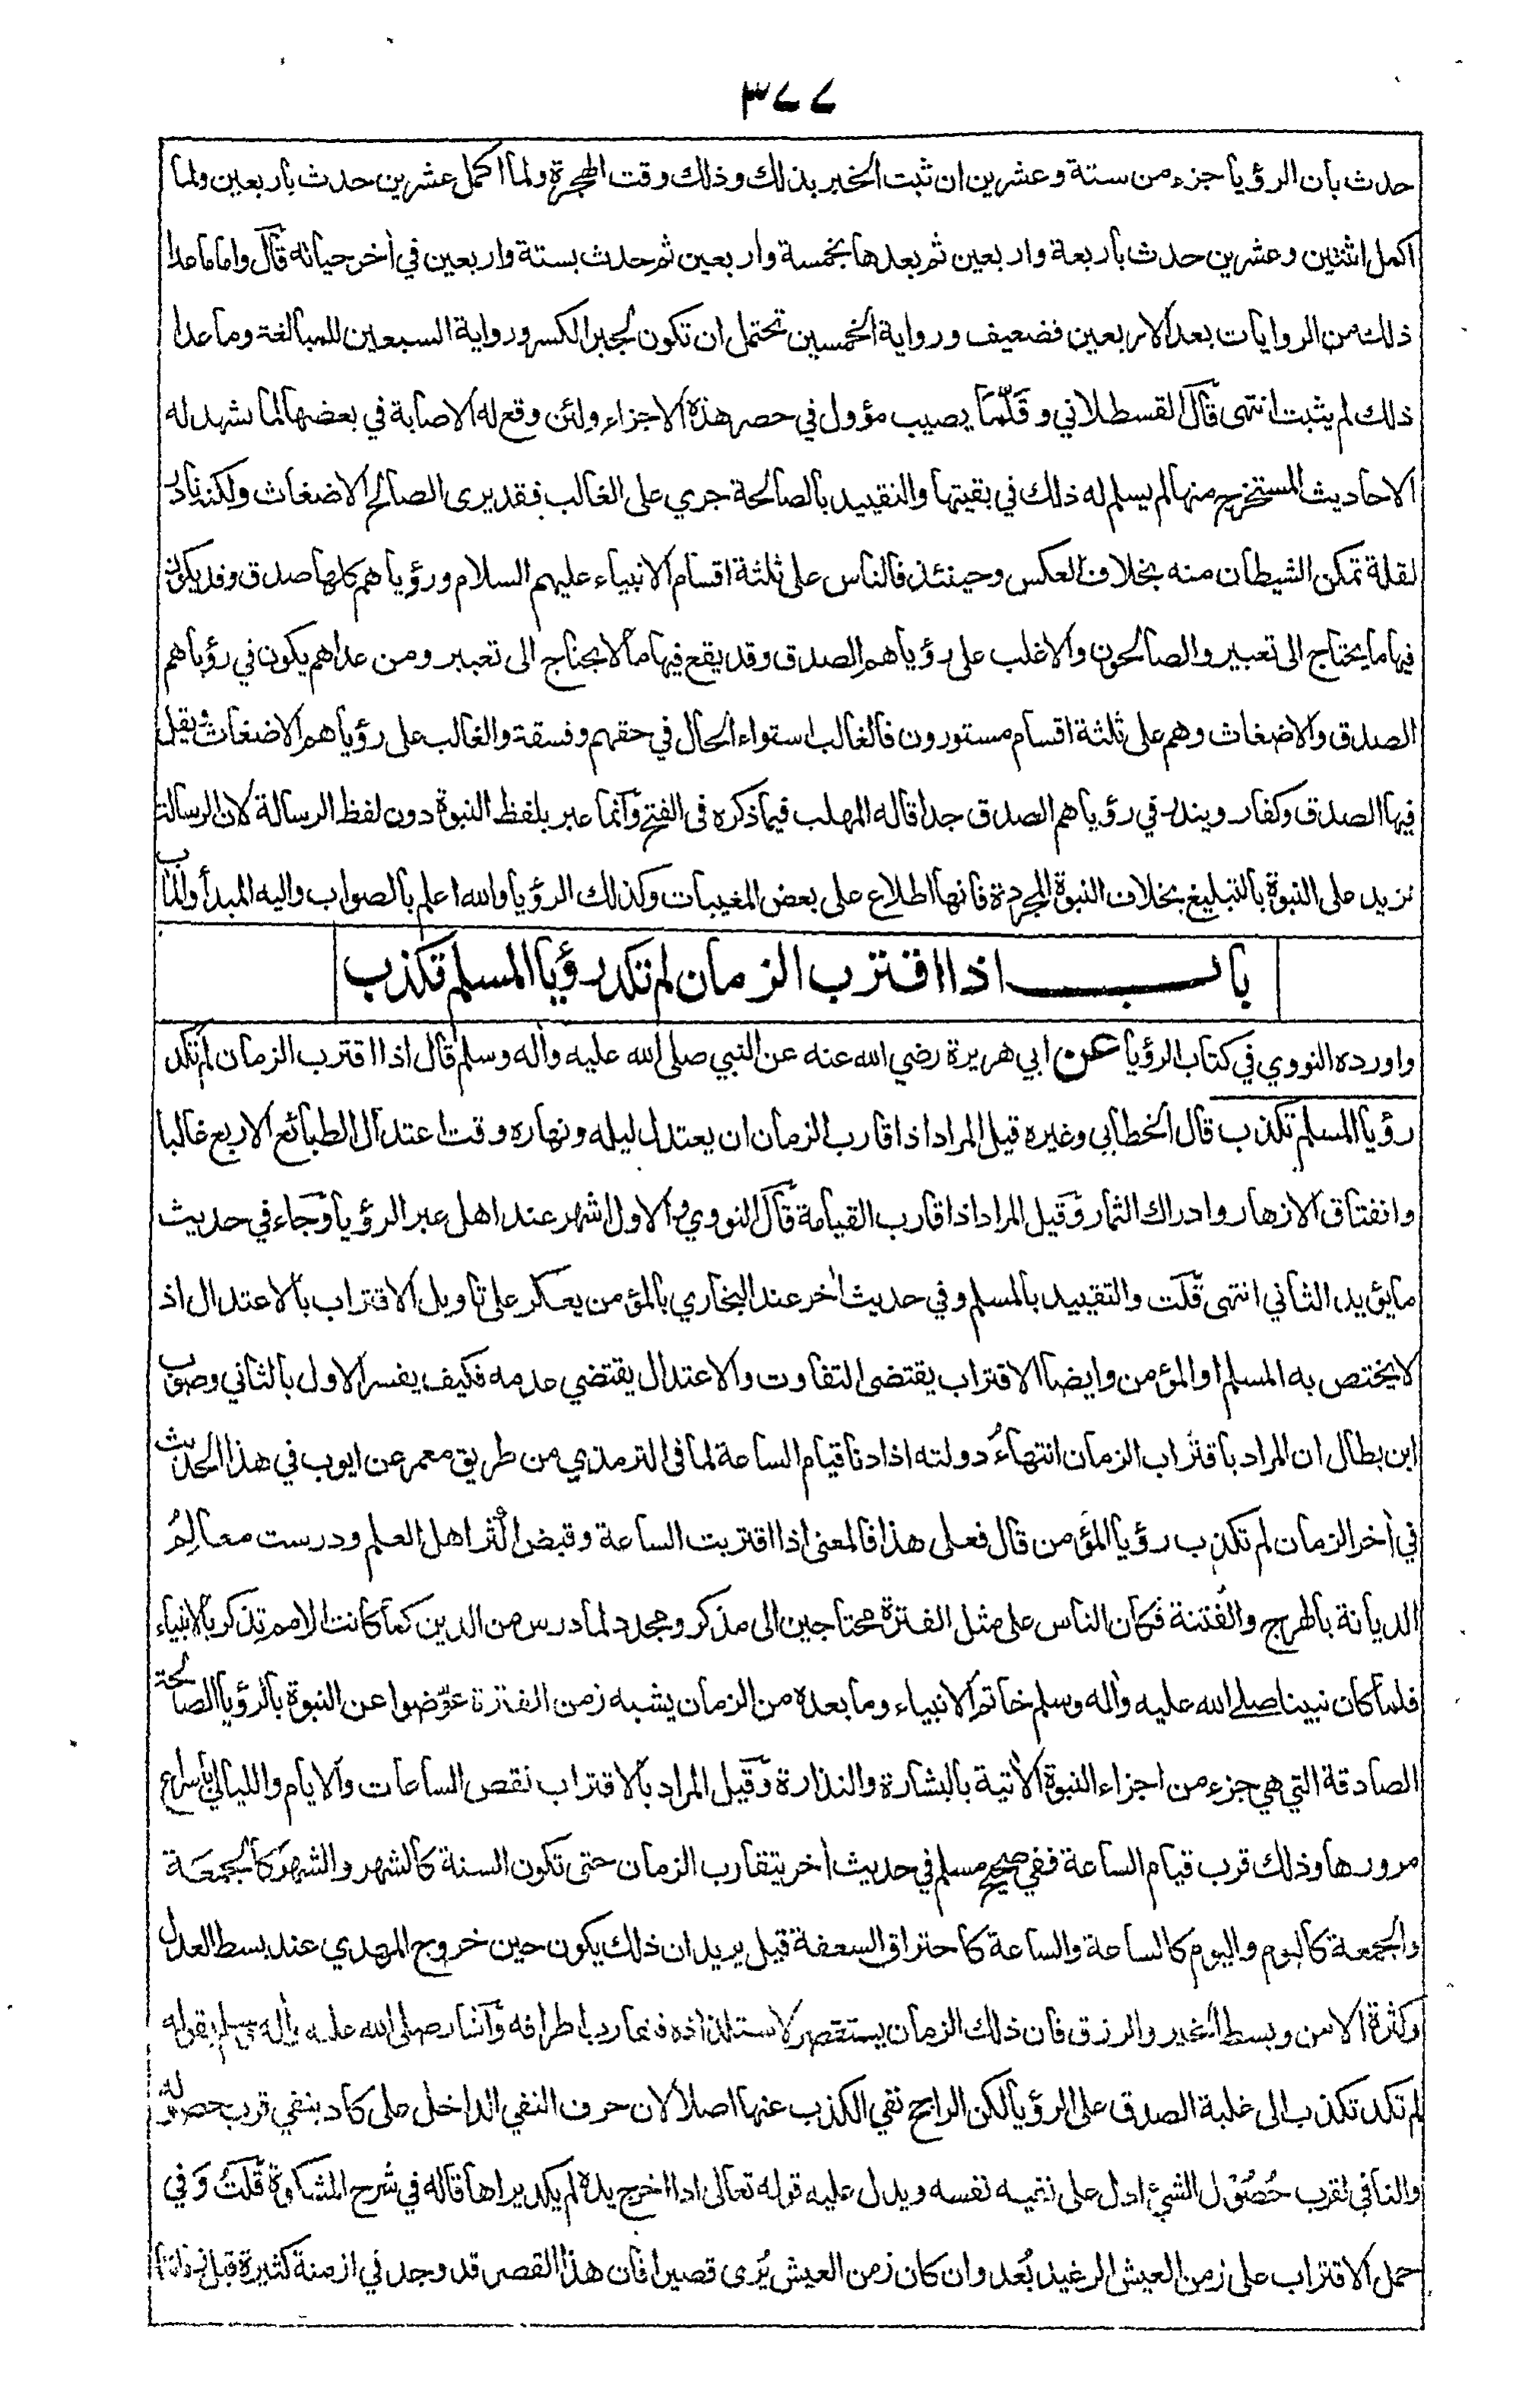 ٣٧٧
حدث بان الرؤيا جزء من ستة وعشرين ان ثبت الخبر بذلك وذلك وقت الهجرة ولما اكمل عشرين حدث باربعين ولما
اكمل اثنتين وعشرين حدث باربعة واربعين ثم بعدها بخمسة واربعين ثم حدث بستة واربعين في أخر حياته قال واما ما عدا
ذلك من الروايات بعد الاربعين فضعيف ورواية الخمسين تحتمل ان تكون لجبر الكسر ورواية السبعين للمبالغة وما عدا
ذلك لم يثبت انتهى قال القسطلاني وقَلّمَا يصيب مؤول في حصر هذه الاجزاء ولئن وقع له الاصابة في بعضها لما تشهد له
الاحاديث المستخرج منها لم يسلم له ذلك في بقيتها والتقييد بالصالحة جري على الغالب فقد يرى الصالح الاضغاث ولكنه نادر
لقلة تمكن الشيطان منه بخلاف العكس وحينئذ فالناس على ثلثة اقسام الانبياء عليهم السلام ورؤياهم كلها صدق وقد يكون
فيها ما يحتاج الى تعبير والصالحون والاغلب على رؤياهم الصدق وقد يقع فيها ما لا يحتاج الى تعبير ومن عداهم يكون في رؤياهم
الصدق والاضغاث وهم على ثلثة اقسام مستورون فالغالب استواء الحال في حقهم وفسقة والغالب على رؤياهم الاضغاث ويقل
فيها الصدق وكفار ويندر في رؤياهم الصدق جدا قاله المهلب فيما ذكره في الفتح وانما عبر بلفظ النبوة دون لفظ الرسالة لان الرسالة
تزيد على النبوة بالتبليغ بخلاف النبوة المجردة فانها اطلاع على بعض المغيبات وكذلك الرؤيا والله اعلم بالصواب واليه المبدأ والمآب
باب اذا اقترب الزمان لم تكد رؤيا المسلم تكذب
واورده النووي في كتاب الرؤيا عن ابي هريرة رضي الله عنه عن النبي صلى الله عليه وأله وسلم قال اذا اقترب الزمان لم تكد
رؤيا المسلم تكذب قال الخطابي وغيره قيل المراد اذا قارب الزمان ان يعتدل ليله ونهاره وقت اعتدال الطبائع الاربع غالبا
وانفتاق الازهار وادراك الثمار وقيل المراد اذا قارب القيامة قال النووي والاول اشهر عند اهل عبر الرؤيا وجاء في حديث
ما يؤيد الثاني انتهى قلت والتقييد بالمسلم وفي حديث أخر عند البخاري بالمؤمن يعكر على تاويل الاقتراب بالاعتدال اذ
لا يختص به المسلم او المؤمن وايضا الاقتراب يقتضى التفاوت والاعتدال يقتضي عدمه فكيف يفسر الاول بالثاني وصوب
ابن بطال ان المراد باقتراب الزمان انتهاءُ دولته اذا دنا قيام الساعة لما فى الترمذي من طريق معمر عن ايوب في هذا الحديث
في أخر الزمان لم تكذب رؤيا المؤمن قال فعلى هذا فالمعنى اذا اقتربت الساعة وقبض اكثر اهل العلم ودرست معالِمُ
الديانة بالهرج والفتنة فكان الناس على مثل الفترة محتاجين الى مذكر ومجدد لما درس من الدين كما كانت الامم تذكر بالانبياء
فلما كان نبينا صلى الله عليه وأله وسلم خاتم الانبياء وما بعده من الزمان يشبه زمن الفترة عوّضوا عن النبوة بالرؤيا الصالحة
الصادقة التي هي جزء من اجزاء النبوة الأتية بالبشارة والنذارة وقيل المراد بالاقتراب نقص الساعات والايام والليالي باسراع
مرورها وذلك قرب قيام الساعة ففي صحيح مسلم في حديث أخر يتقارب الزمان حتى تكون السنة كالشهر والشهر كالجمعة
والجمعة كاليوم واليوم كالساعة والساعة كاحتراق السعفة قيل يريد ان ذلك يكون حين خروج المهدي عند بسط العدل
وكثرة الامن وبسط الخير والرزق فان ذلك الزمان يستقصر لاستلذاذه فيتقارب اطرافه واشار صلى الله عليه وأله وسلم بقوله
لم تكد تكذب الى غلبة الصدق على الرؤيا لكن الراجح نفي الكذب عنها اصلا لان حرف النفي الداخل على كاد ينفي قرب حصوله
والنافي لقرب حُصُوْل الشيء ادل على نفيه نفسه ويدل عليه قوله تعالى اذا اخرج يده لم يكد يراها قاله في شرح المشكوة قلتُ وَفي
حمل الاقتراب على زمن العيش الرغيد بُعد وان كان زمن العيش يُرى قصيرا فان هذا القصر قد وجد في ازمنة كثيرة قبل